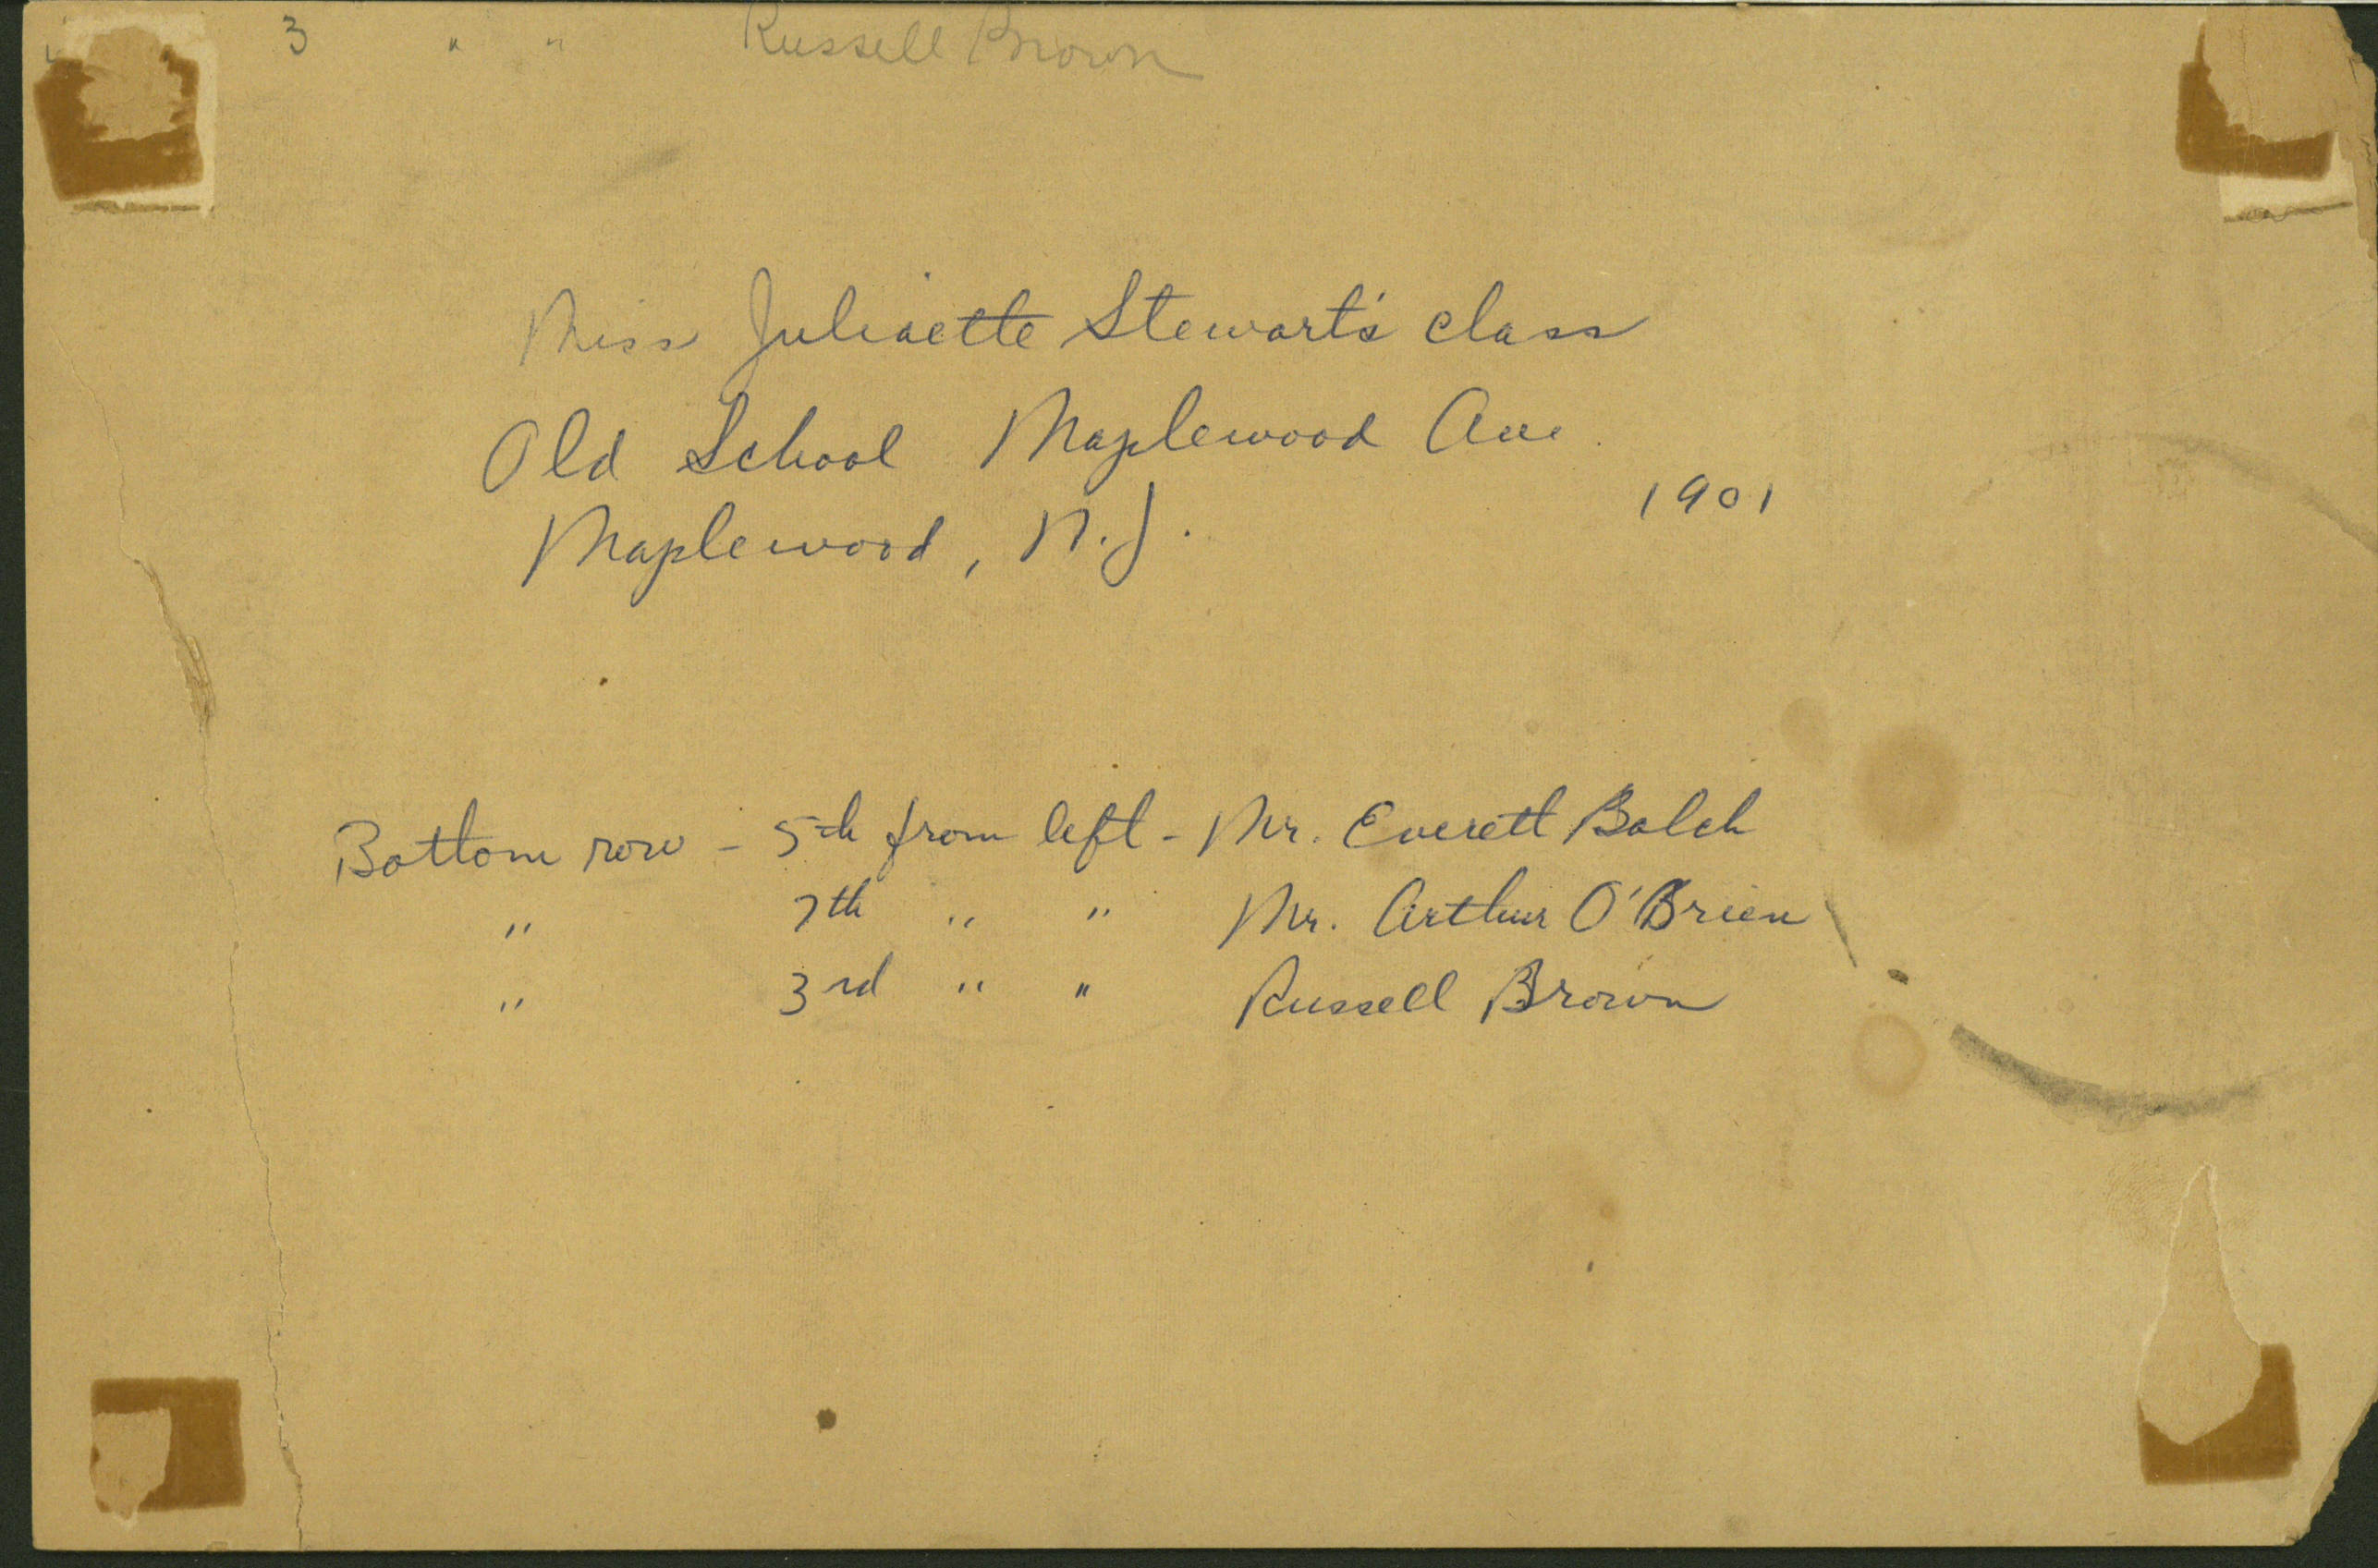 3 " " Russell Brown
Miss Juliaette Stewart's class
Old School Maplewood Ave.
Maplewood, N.J.
1901
Bottom row - 5th from left - Mr. Everett Balch
" 7th " " Mr. Arthur O'Brien
" 3rd " " Russell Brown